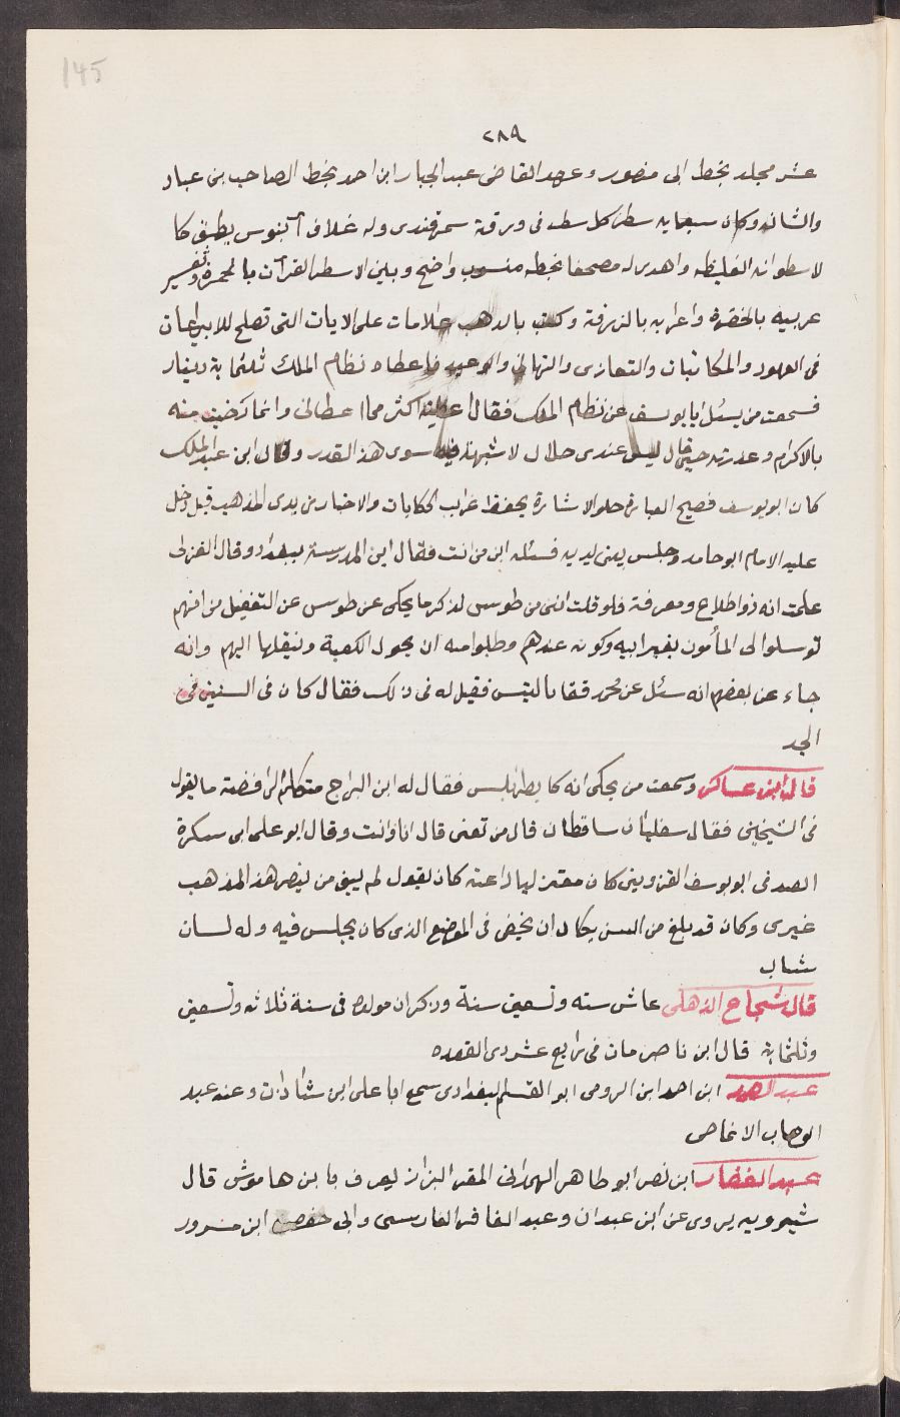 145
٢٨٩
عشر مجلد بخط ابى منصور وعهد القاضى عبد الجبار ابن احمد بخط الصاحب بن عباد
والشانه وكان سبعمايه سطر كل سطر فى ورقة سمرقندى وله غلاف آبنوس يطبق كا
لاسطوانه الغليظه واهدى له مصحفا بخطه منسوب واضح وبين الاسطر القرآت بالحمرة وتفسير
عربيه بالخضرة واعرابه بالزرقة وكتب بالدهب علامات على الايات التى تصلح للابراعات
فى العهود والمكاتبات والتعازى والتهانى والوعيد فاعطاه نظام الملك ثلثمائة دينار
فسمعت من يسئل ابا يوسف عن نظام الملك فقال اعطيته اكثر مما اعطانى وانما رضيت منه
بالاكرام وعدرته حين قال ليس عندى حلال لا شبهة فيه سوى هذ القدر وقال ابن عبد الملك
كان ابو يوسف فصيح العبارة حلو الاشارة يحفظ غرايب الحكايات والاخبار من يدى المذهب قيل دخل
عليه الامام ابو حامد وجلس بين يديه فسئله ابن من انت فقال ابن المدرسة ببغداد وقال الغزلى
علمت انه ذو اطلاع ومعرفة فلو قلت اننى من طوس لذكر ما يحكى عن طوس عن التغفيل من انهم
توسلوا الى المأمون بقبر ابيه وكونه عندهم وطلبوا منه ان يحول الكعبة وينقلها اليهم وانه
جاء عن بعضهم انه سئل عن نجمه فقال بالتيس فقيل له فى ذلك فقال كان فى السنين فى
الجد
قال ابن عساكر وسمعت من يحكى انه كا بطرابلس فقال له ابن البراج متكلم الرافضة ما يقول
فى الشيخين فقال سفلتان ساقطان قال من تعنى قال انا وانت وقال ابو على ابى سكرة
الصدفى ابو يوسف القزوينى كان معتزليا داعيه كان يقول لم يبق من ينصر هذ المذهب
غيرى وكان قد بلغ من السن يكاد ان يخفى فى الموضع الذى كان يجلس فيه وله لسان
شاب
قال شجاع الذهلى عاش سته وتسعين سنة وذكر ان مولده فى سنة ثلاثه وتسعين
وثلثماية قال ابن ناصر مات فى رابع عشر ذى القعده
عبد الصمد ابن احمد ابن الرومى ابو القسم البغدادى سمع ابا على ابن شاذان وعنه عبد
الوهاب الانماصى
عبد الغفار ابن نصر ابو طاهر الهمدانى المقرى البزاز يعرف بابن هاموش قال
شيرويه يروى عن ابن عبدان وعبد الغافر الفارسى وابى حفص ابن مسرور